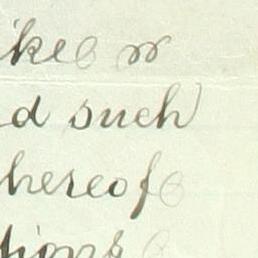 ike or
d such
hereof
tions